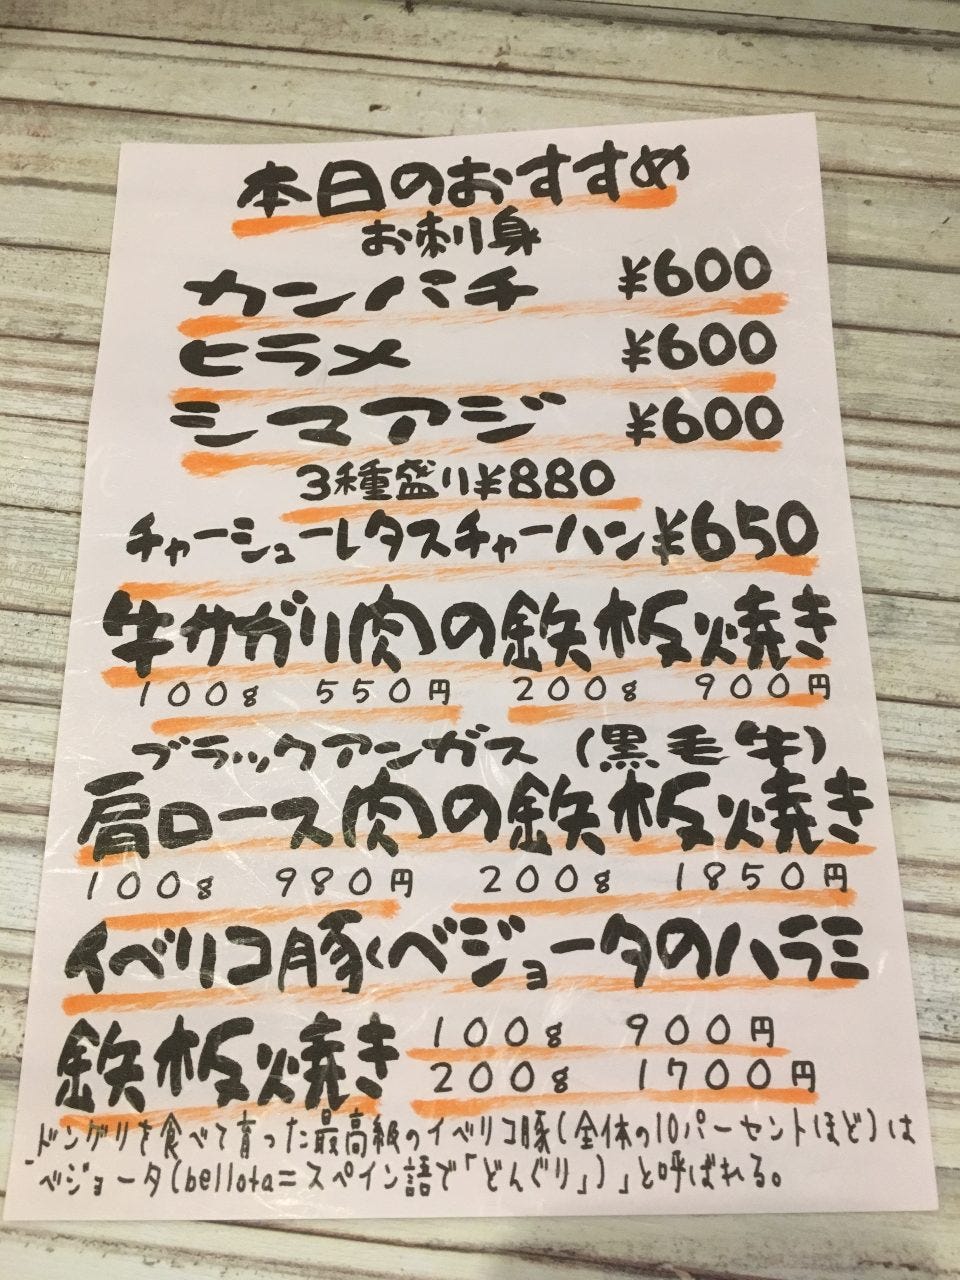 本日のおすすめ
お刺身
カンパチ ¥600
ヒラメ ¥600
シマアジ ¥600
3種盛り¥880
チャーシューレタスチャーハン¥650
牛サガリ肉の鉄板焼き
100g 550円 200g 900円
ブラックアンガス(黒毛牛)
肩ロース肉の鉄板焼き
100g 980円 200g 1850円
イベリコ豚くベジョータのハラミ
鉄板焼き 100g 900円
200g 1700円
ドングリを食べて育った最高級のイベリコ豚(全体の10パーセントほど)は
ベジョータ(bellota=スペイン語で「どんぐり」)」と呼ばれる。